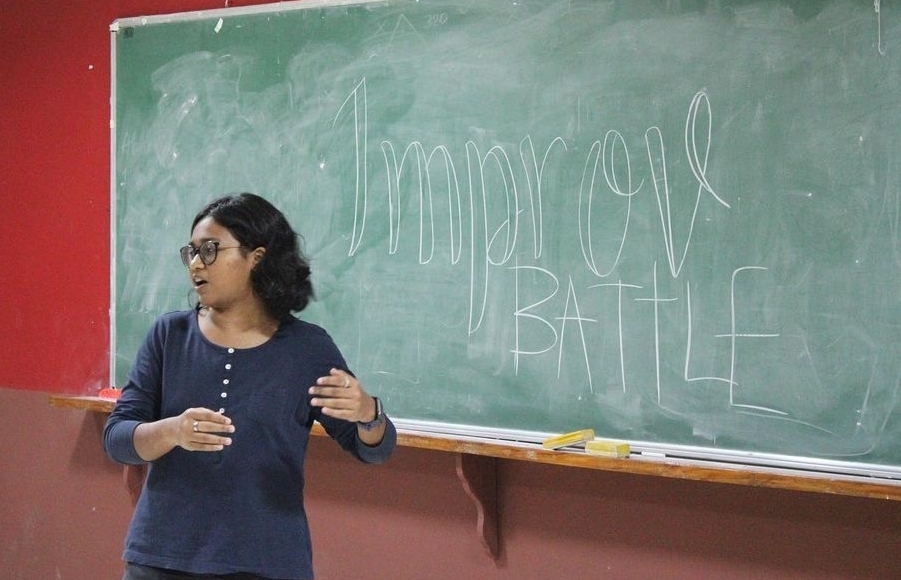 Improv
BATTLE